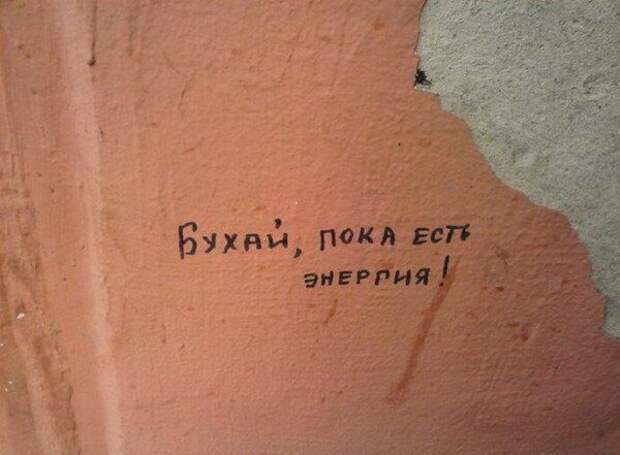 Бухай, пока есть
энергия!